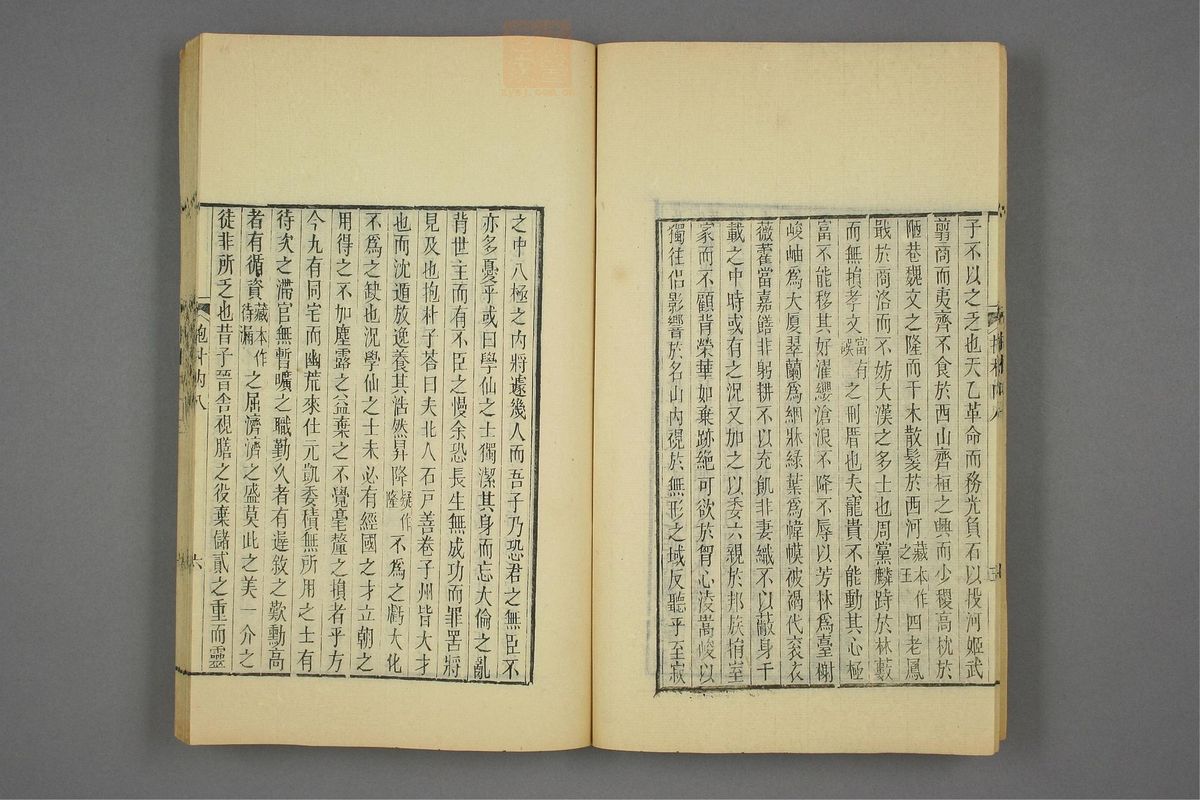 子不以之乏也天乙革命而務光負石以投河姬武
翦商而夷齊不食於西山齊桓之興而少稷高枕於
陋巷魏文之隆而干木散髮於西河藏本作之王四老鳳
戢於商洛而不妨大漢之多士也周黨麟跱於林藪
而無損孝文富有誤之刑厝也夫寵貴不能動其心極
富不能移其好濯纓滄浪不降不辱以芳林爲臺榭
峻岫爲大厦翠蘭爲絪牀綠葉爲幃幙被褐代袞衣
薇藿當嘉膳非躬耕不以充飢非妻織不以蔽身千
載之中時或有之況又加之以委六親於邦族捐室
家而不顧背榮華如棄跡絶可欲於胷心淩嵩峻以
獨往侣影響於名山內視於無形之域反聽乎至寂
之中八極之內將遽幾人而吾子乃恐君之無臣不
亦多憂乎或曰學仙之士獨潔其身而忘大倫之亂
背世主而有不臣之慢余恐長生無成功而罪罟將
見及也抱朴子荅曰夫北人石戸善卷子州皆大才
也而沈遁放逸養其浩然昇降疑作隆不爲之虧大化
不爲之缺也況學仙之士未必有經國之才立朝之
用得之不加塵露之益棄之不覺毫釐之損者乎方
今九有同宅而幽荒來仕元凱委積無所用之士有
待次之滯官無暫曠之職勤久者有遲敘之歎勳高
者有循資藏本作待漏之屈濟濟之盛莫此之美一介之
徒非所乏也昔子晉舍視膳之役棄儲貳之重而靈
抱朴內八
六